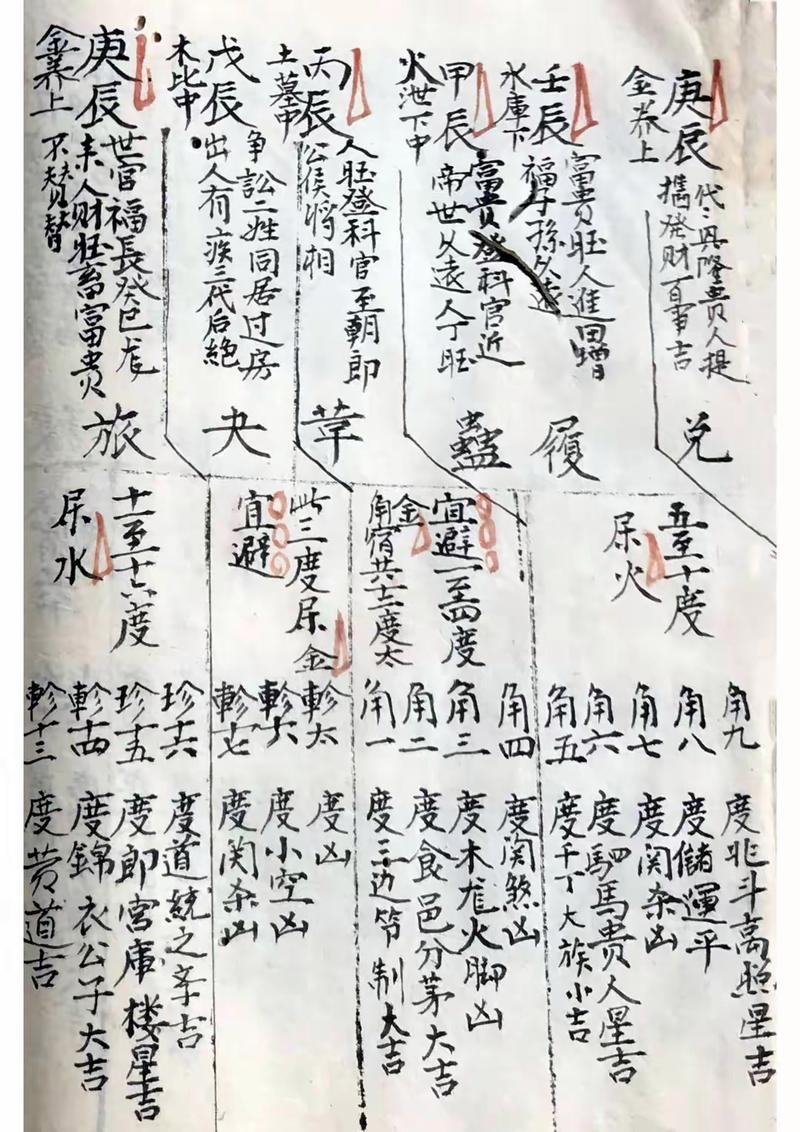 庚辰
金养上
代々兴隆贵人提
携發财百事吉
兑
壬辰
水庫下
富贵旺人進田增
福子孫久遠
履
甲辰
火泄下中
富贵登科官近
帝世久遠人丁旺
蠱
丙辰
土墓中
人旺登科官至朝郎
公侯將相
革
戊辰
木比中
争訟二姓同居过房
出人有疾三代后絶
夬
庚辰
金养上
世官福長癸巳龙
来人财旺畜富贵
不替
旅
五至十度
尿火
宜避一至四度
金
角宿共十二度太
此三度尿金
宜避
十一至十六度
尿水
角九度北斗高照星吉
角八度儲運平
角七度関杀凶
角六度駟馬贵人星吉
角五度千丁大族小吉
角四度関煞凶
角三度木龙火脚凶
角二度食邑分茅大吉
角一度三边节制大吉
軫太度凶
軫六度小空凶
軫十七度関杀凶
珍十六度道統之亲吉
珍十五度郎官庫楼星吉
軫十四度錦衣公子大吉
軫十三度黄道吉